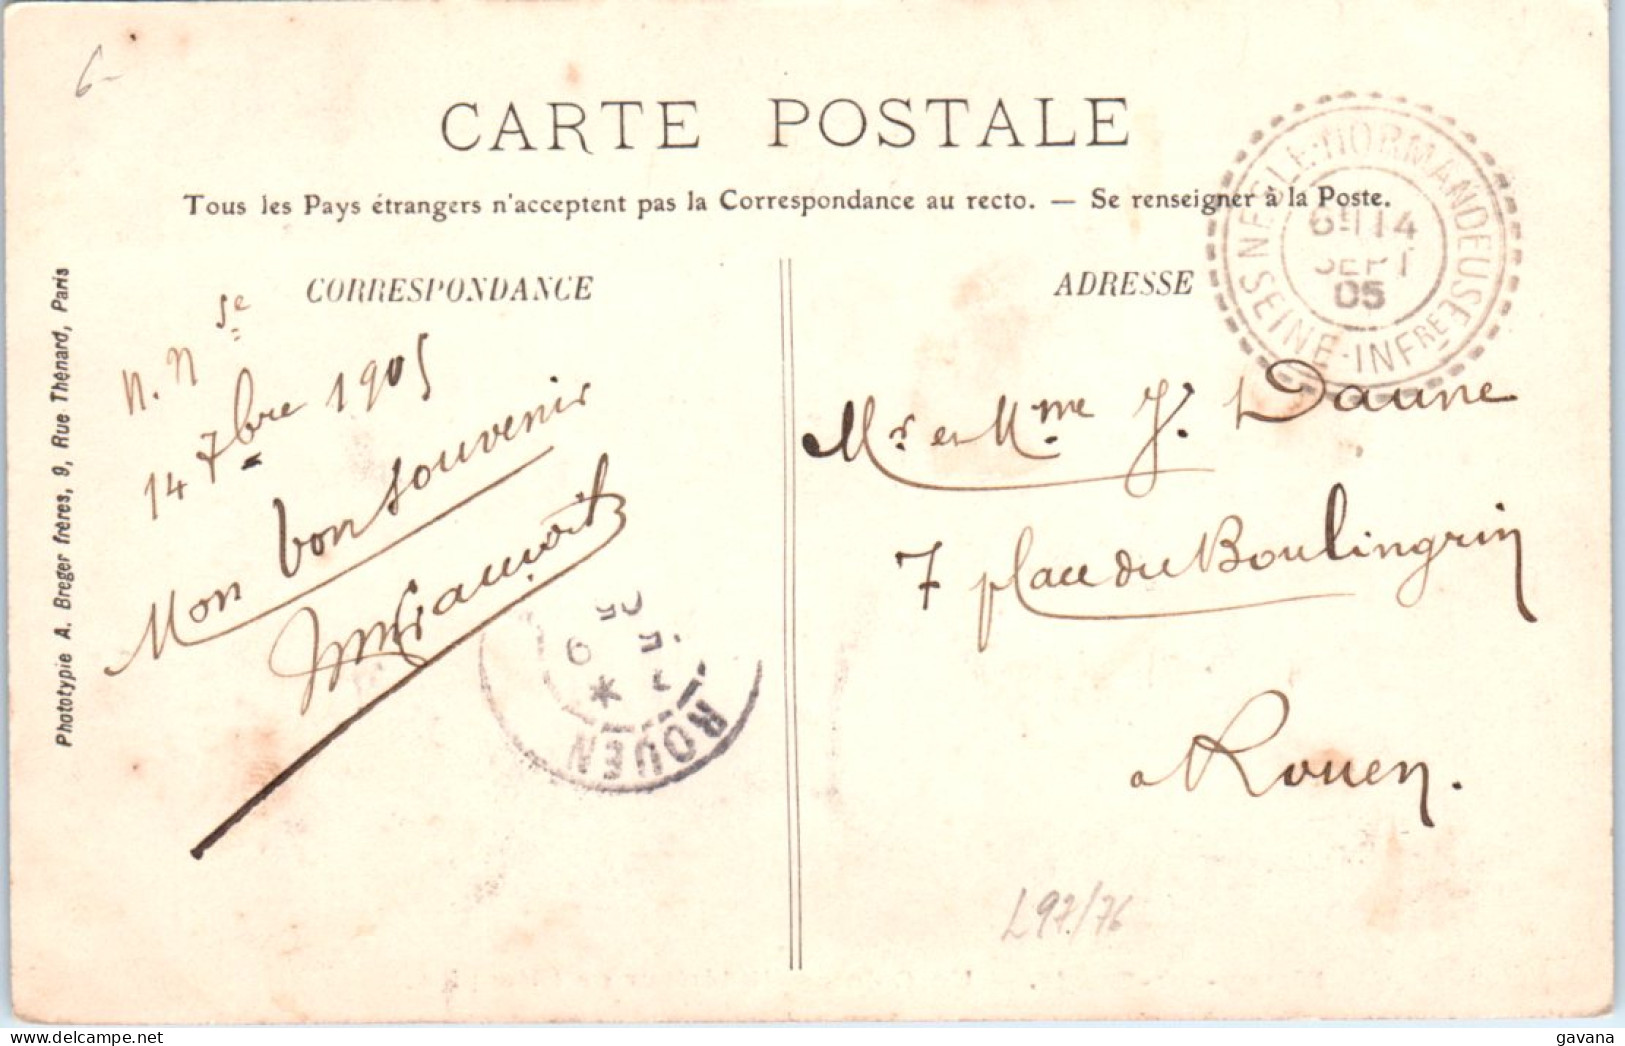 6-
CARTE POSTALE
Tous les Pays étrangers n'acceptent pas la Correspondance au recto. — Se renseigner à la Poste.
CORRESPONDANCE
N. Nse
14 7bre 1905
Mon bon souvenir
ADRESSE
NESLE-NORMANDEUSE
SEINE-INFRE
6H 14
SEPT
05
Mr et Mme J. Daune
7 place du Boulingrin
a Rouen.
ROUEN
05
L97/76
Phototypie A. Breger frères, 9, Rue Thenard, Paris
gavana